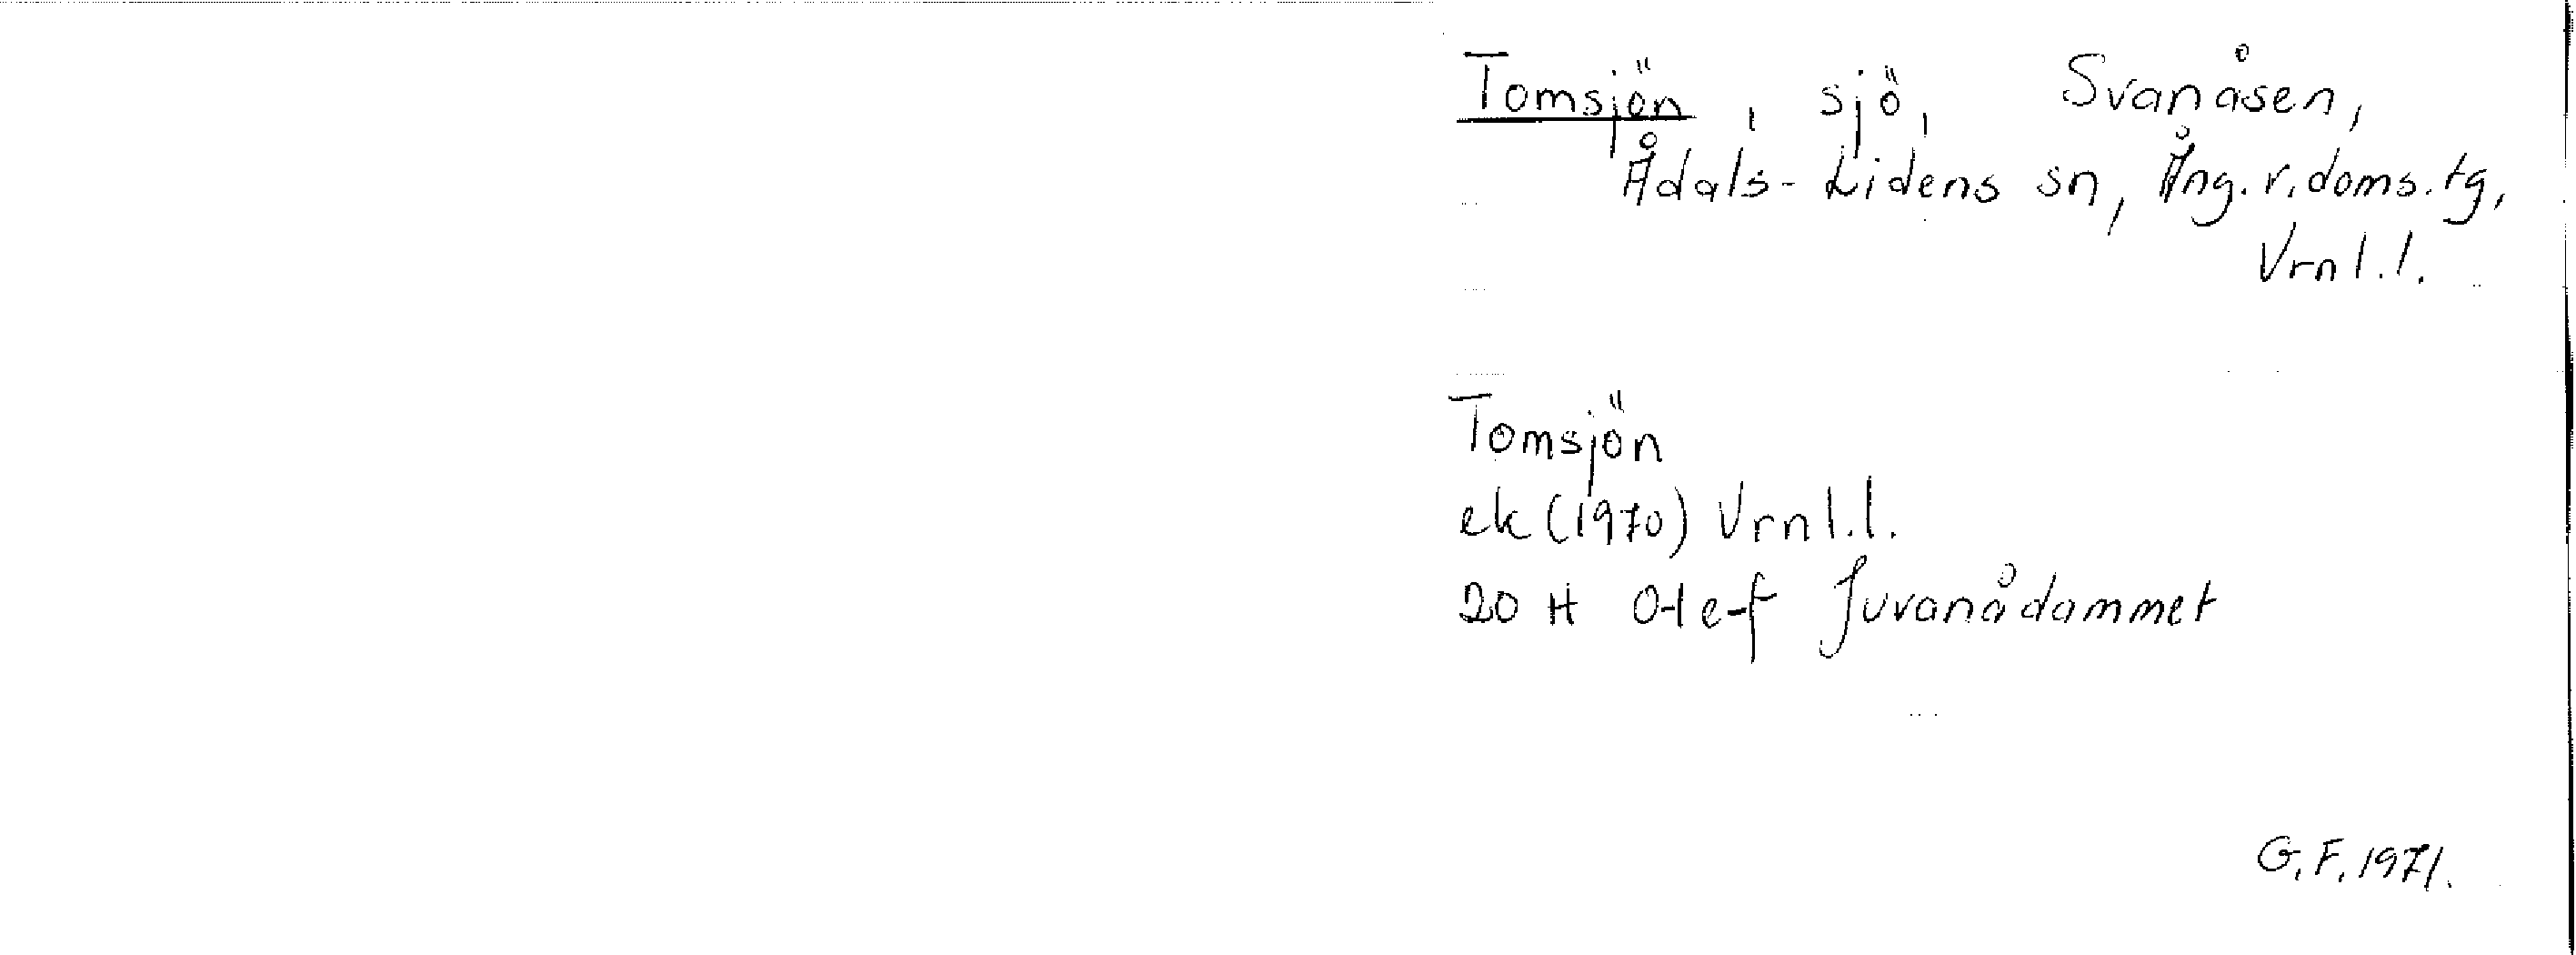 Tomsjön, sjö, Svanåsen,
Ådals-Lidens sn, Ång.r.doms.tg,
Vrnl.l.
Tomsjön
ek (1970) Vrnl.l.
20 H 0-1 e-f Juvanådammet
G.F. 1971.